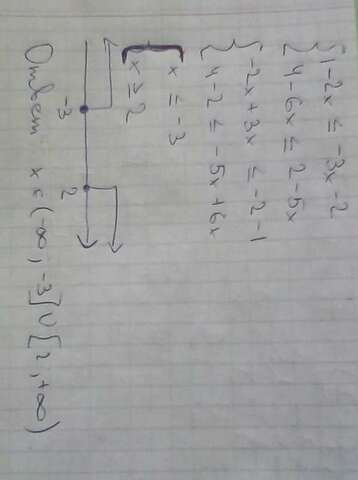 { 1 - 2x ≤ -3x - 2
{ 4 - 6x ≤ 2 - 5x
{ -2x + 3x ≤ -2 - 1
{ 4 - 2 ≤ -5x + 6x
[ x ≤ -3
[ x ≥ 2
-3 2
Ответ x ∈ (-∞; -3] ∪ [2, +∞)